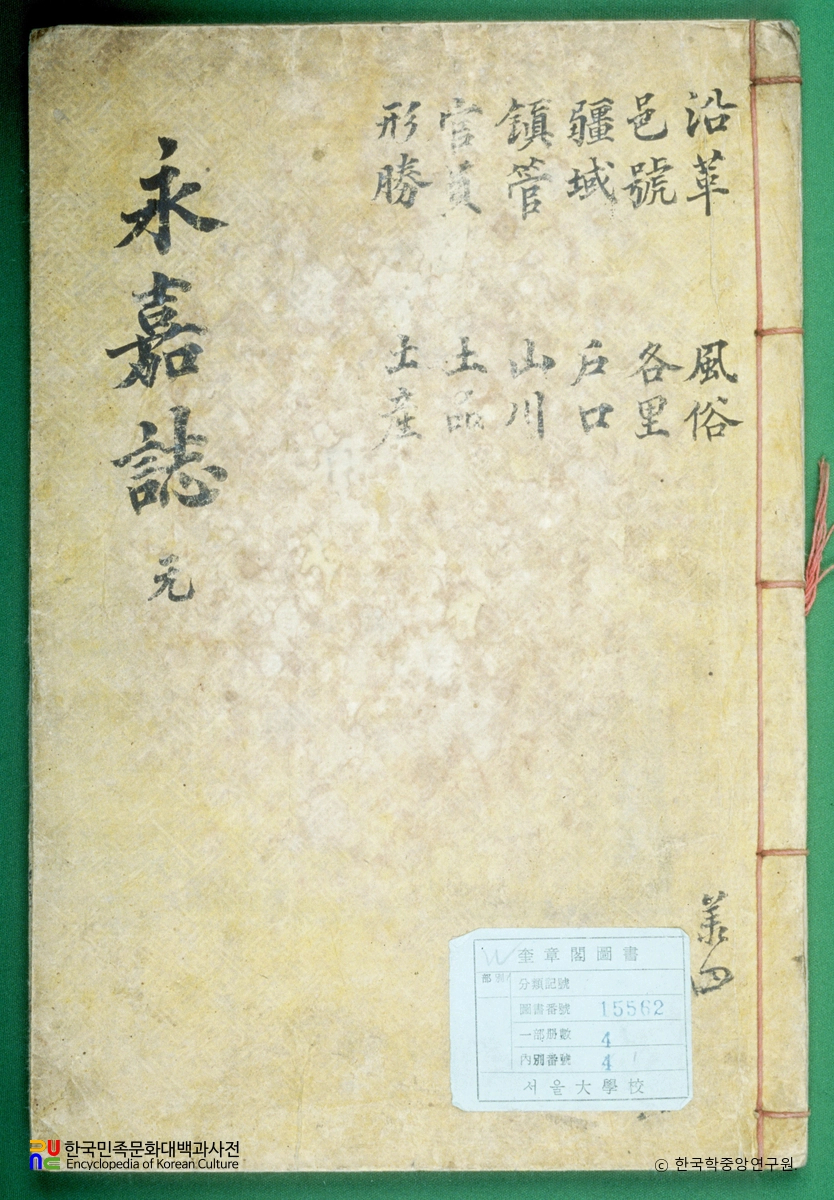 沿革
邑號
疆域
鎭管
官員
形勝
風俗
各里
戶口
山川
土品
土產
永嘉誌 元
共四
奎章閣圖書
部別
分類記號
圖書番號 15562
一部冊數 4
內別番號 4
서울大學校
한국민족문화대백과사전
Encyclopedia of Korean Culture
© 한국학중앙연구원